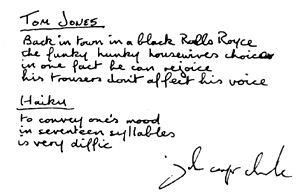 TOM JONES
Back in town in a black Rolls Royce
the funky hunky housewives choice
in one fact he can rejoice
his trousers don't affect his voice
Haiku
to convey one's mood
in seventeen syllables
is very diffic
john cooper clarke